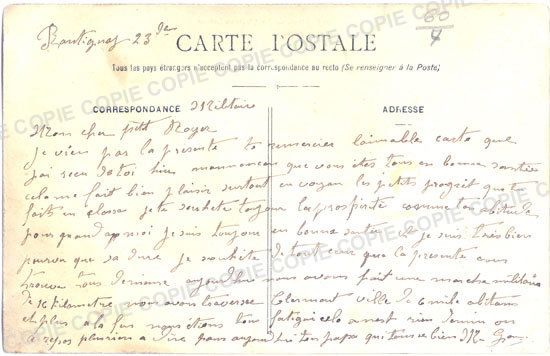 Rantigny 23 9bre
60
4
CARTE POSTALE
Tous les pays étrangers n'acceptent pas la correspondance au recto (Se renseigner à la Poste)
CORRESPONDANCE Militaire
ADRESSE
Mon cher petit Roger
je vien par la presente te remercier l'aimable carte que
j'ai recu de toi hier mannoncan que vous ètes tous en bonne santée
cela me fait bien plaisir surtout en voyan les petits progrèt que tu
fait en classe je te souhete toujour la prosperité comme
pour quand a moi je suis toujour en bonne santer et je suis très bien
pourvu que sa dure je souhaite de tout cœur que la presente vous
trouve tous de meme aujourdhui nous avons fait une marche militaire
de 16 kilometre nous avons traversee Clermont ville de 6 mile abitans
et plus a la fin nous etions tous fatiguè cela n'est rien demin on
repos plus rien a dire pour aujourdhui ton papa qui tous
COPIE COPIE COPIE COPIE COPIE